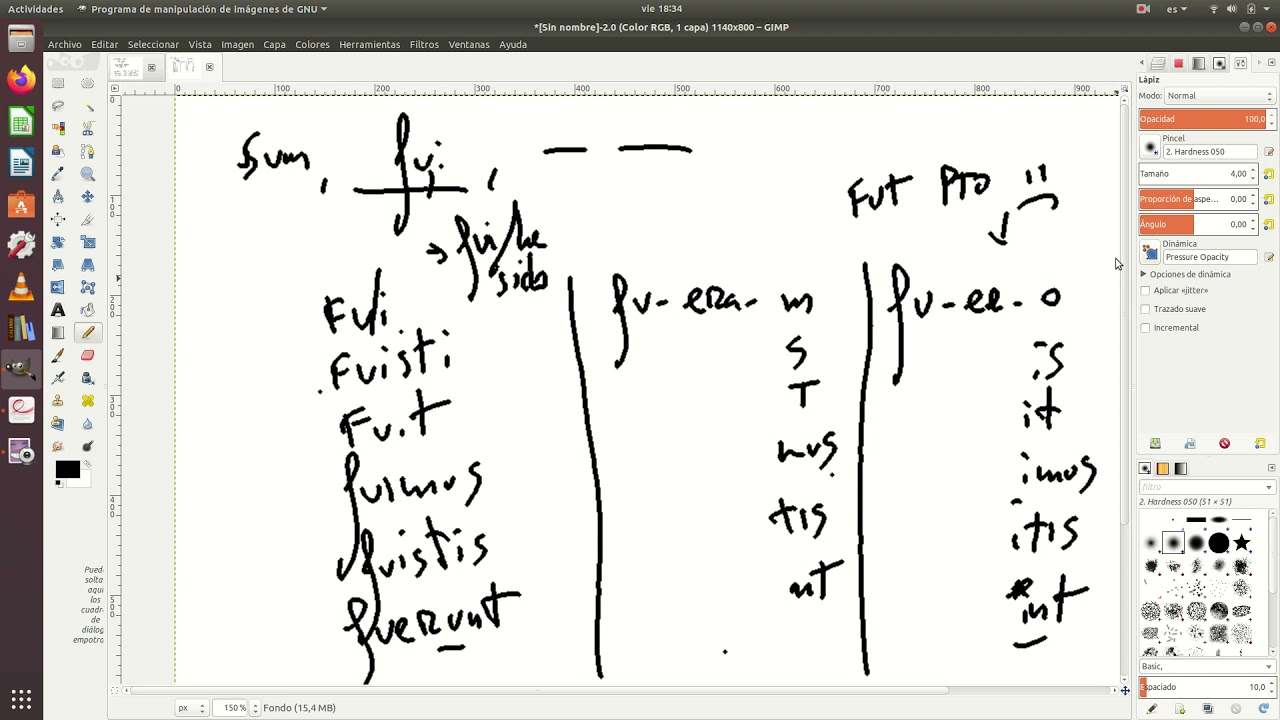 Actividades
Programa de manipulación de imágenes de GNU
vie 18:34
es
*[Sin nombre]-2.0 (Color RGB, 1 capa) 1140x800 – GIMP
Archivo Editar Seleccionar Vista Imagen Capa Colores Herramientas Filtros Ventanas Ayuda
0 100 200 300 400 500 600 700 800 900
Sum, fui, — —
Fut Pto
→ fui/he
sido
Fui
Fuisti
Fuit
fuimus
fuistis
fuerunt
fu-era-m
s
T
mus
tis
nt
fu-er-o
is
it
imus
itis
int
Pued
solta
aqui
los
cuadra
de
diálog
empotra
px
150 %
Fondo (15,4 MB)
Lápiz
Modo: Normal
Opacidad 100,0
Pincel
2. Hardness 050
Tamaño 4,00
Proporción de aspe... 0,00
Ángulo 0,00
Dinámica
Pressure Opacity
Opciones de dinámica
Aplicar «jitter»
Trazado suave
Incremental
filtro
2. Hardness 050 (51 × 51)
Basic,
Espaciado 10,0